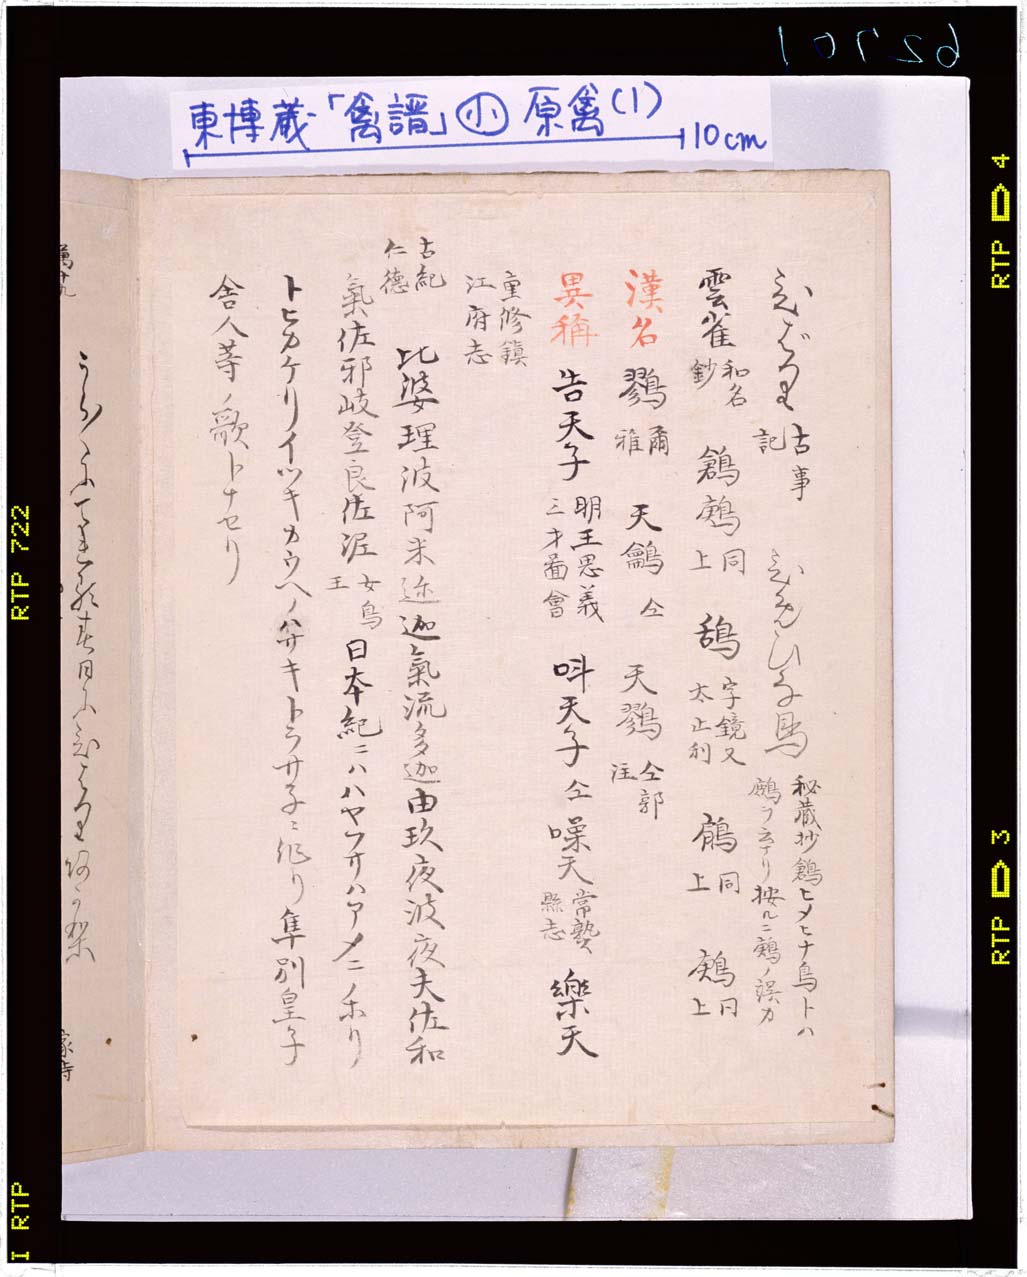 62701
東博蔵「禽譜」㊥小 原禽(1)
10cm
ひばり 古事記 ひめひな鳥 秘蔵抄鶬ヒメヒナ鳥トハ鶊ヲ云ナリ按ルニ鶊ノ誤カ
雲雀 和名鈔 鶬鶊 同上 鴰 字鏡又太止利 同上 鶊 同上
漢名 鷚 爾雅 天鸙 仝 天鷚 仝郭注
異称 告天子 明王思義三才啚會 叫天子 仝 噪天 常塾縣志 樂天
重修鎮江府志
古紀仁徳 比婆理波阿米迩迦氣流多迦由玖夜波夜夫佐和
氣佐邪岐登良佐泥 女鳥王 日本紀ニハハヤフサハアメニノホリ
トヒカケリイツキカウヘノハサキトラサネニ作り隼別皇子
舎人等ノ歌トナセリ
RTP 4
RTP 3
RTP 722
I RTP